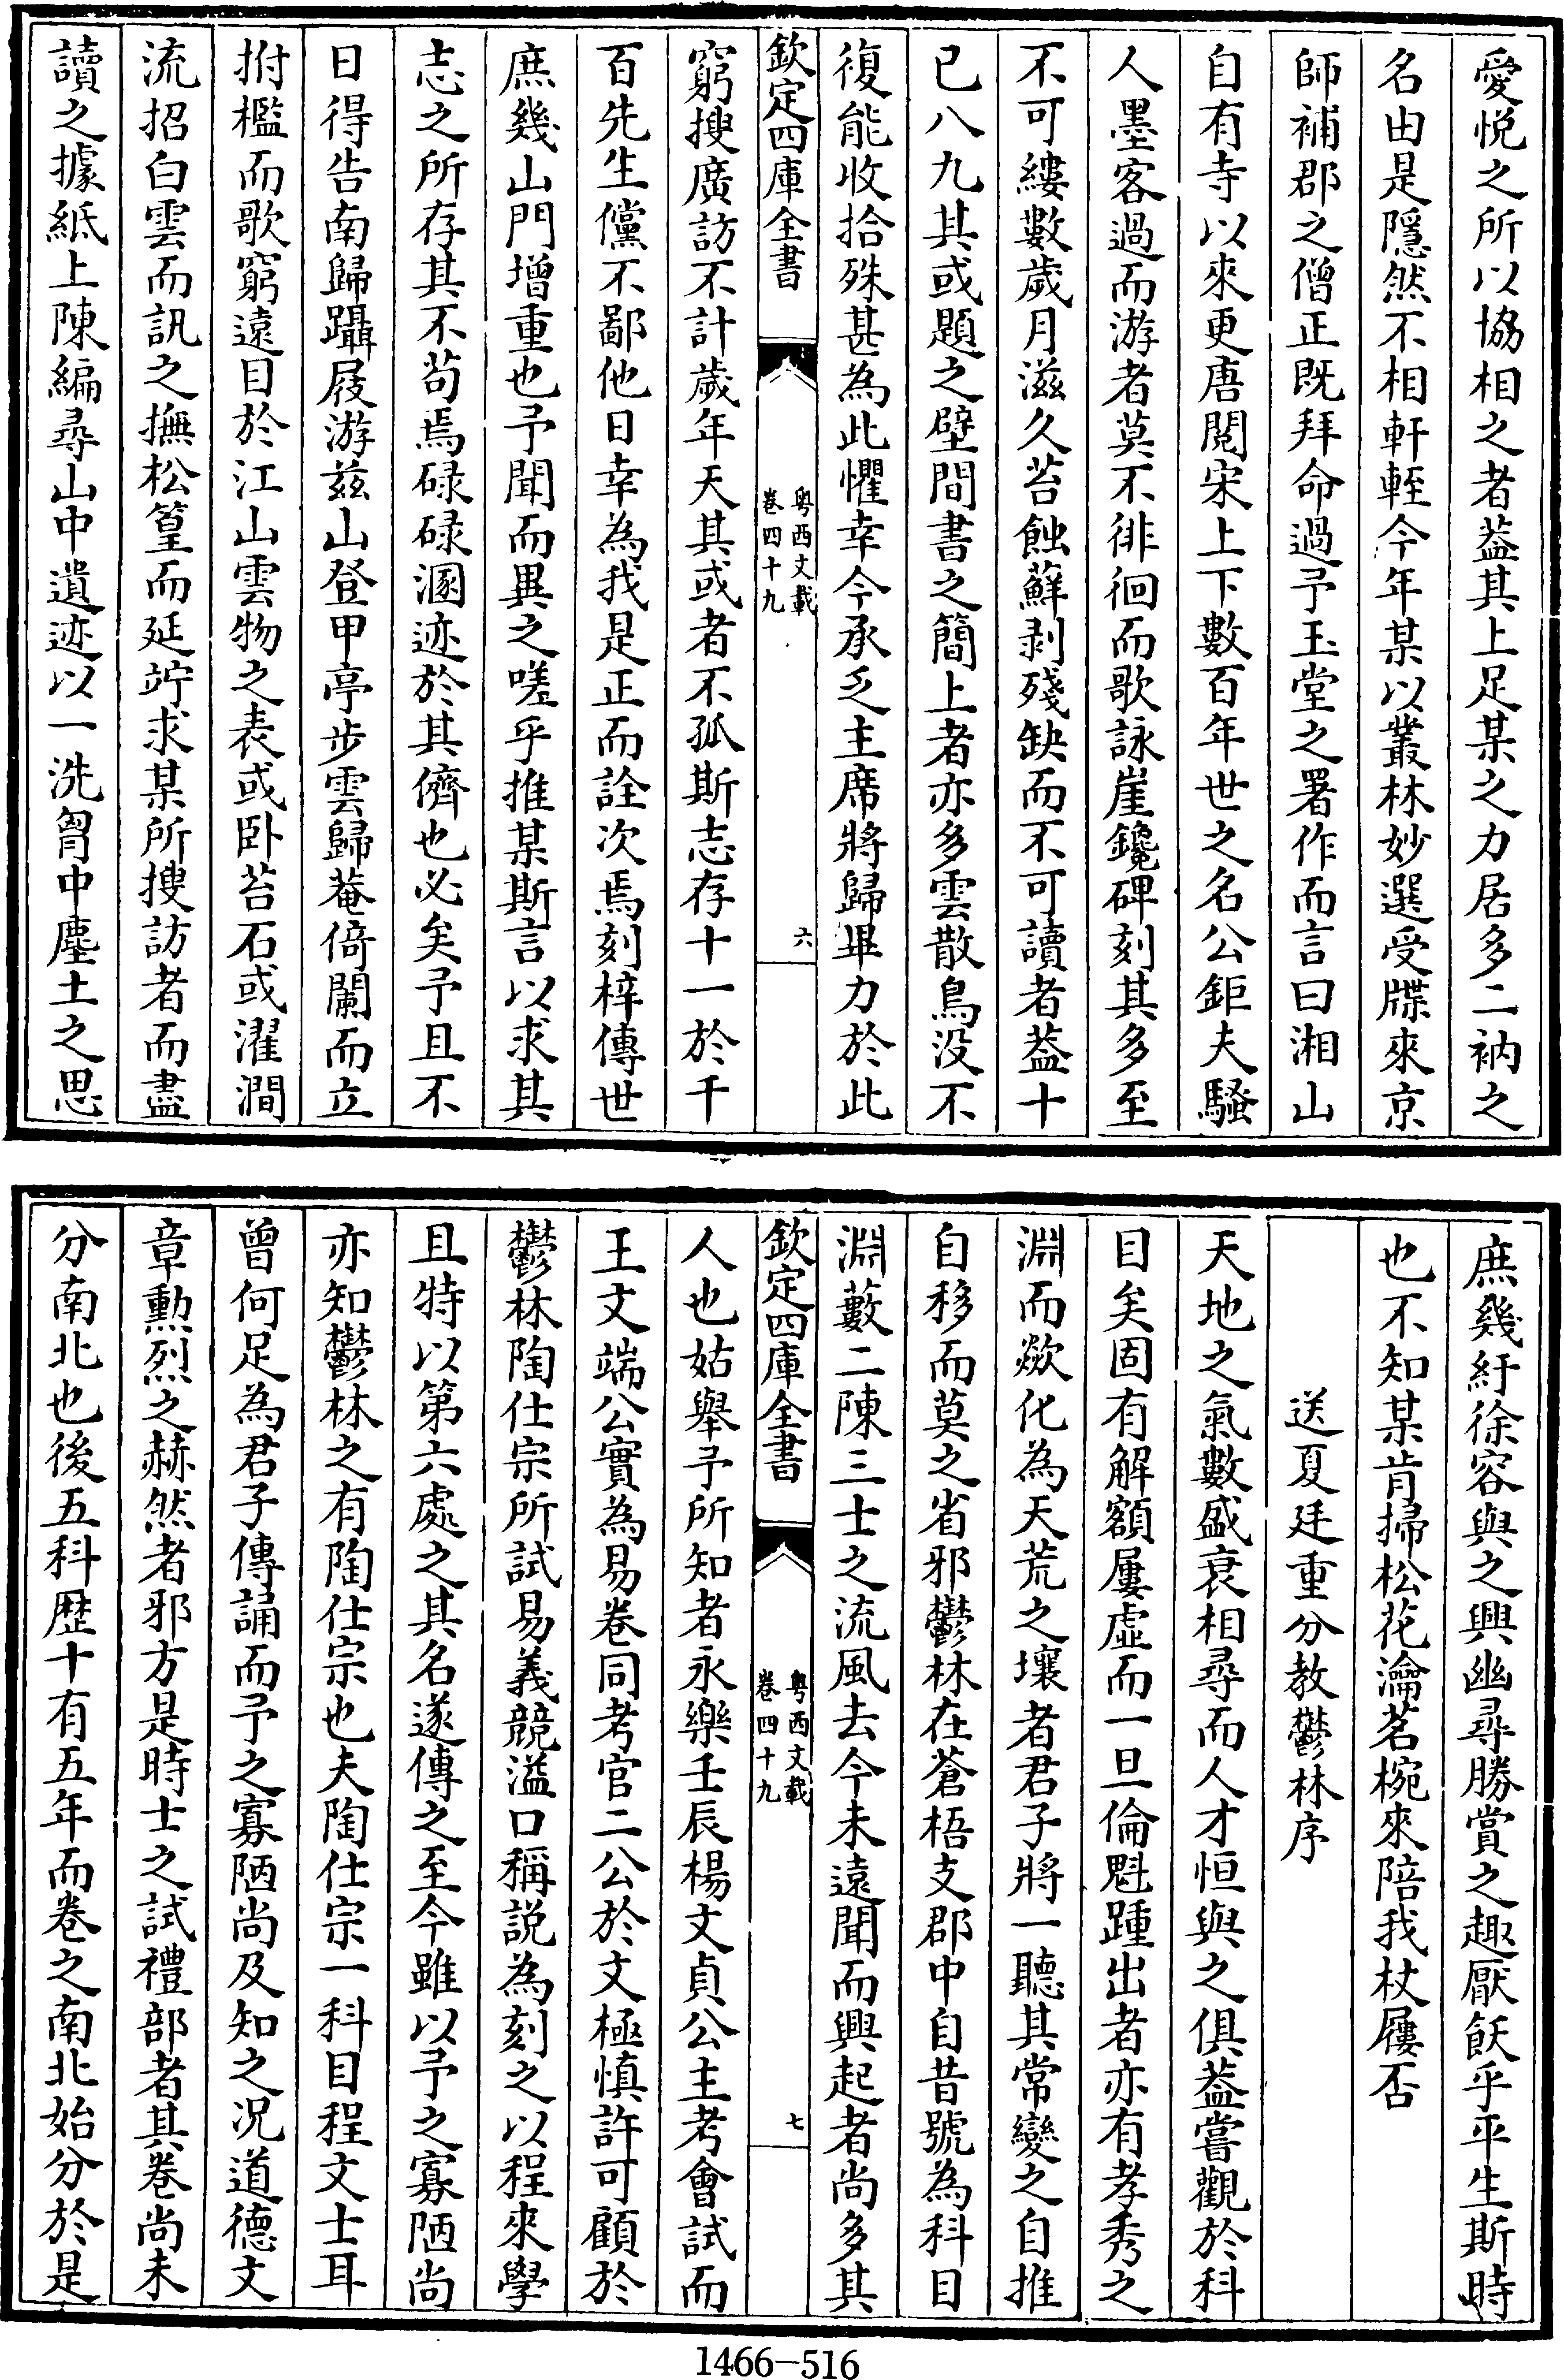 愛悦之所以協相之者葢其上足某之力居多二衲之
名由是隱然不相軒輊今年某以叢林妙選受牒來京
師補郡之僧正既拜命過予玉堂之署作而言曰湘山
自有寺以來更唐閲宋上下數百年世之名公鉅夫騷
人墨客過而游者莫不徘徊而歌詠崖鑱碑刻其多至
不可縷數歲月滋久苔蝕蘚剥殘缺而不可讀者葢十
已八九其或題之壁間書之簡上者亦多雲散鳥没不
復能收拾殊甚為此懼幸今承乏主席將歸畢力於此
欽定四庫全書
粤西文載
卷四十九
六
窮搜廣訪不計歲年天其或者不孤斯志存十一於千
百先生儻不鄙他日幸為我是正而詮次焉刻梓傳世
庶幾山門增重也予聞而異之嗟乎推某斯言以求其
志之所存其不苟焉碌碌溷迹於其儕也必矣予且不
日得告南歸躡屐游兹山登甲亭步雲歸菴倚闌而立
拊檻而歌窮遠目於江山雲物之表或卧苔石或濯澗
流招白雲而訊之撫松篁而延竚求某所搜訪者而盡
讀之據紙上陳編尋山中遺迹以一洗胷中塵土之思
庶幾紆徐容與之興幽尋勝賞之趣厭飫乎平生斯時
也不知某肯掃松花瀹茗椀來陪我杖屨否
送夏廷重分教鬱林序
天地之氣數盛衰相尋而人才恒與之俱葢嘗觀於科
目矣固有解額屢虛而一旦倫魁踵出者亦有孝秀之
淵而歘化為天荒之壤者君子將一聽其常變之自推
自移而莫之省邪鬱林在蒼梧支郡中自昔號為科目
淵藪二陳三士之流風去今未遠聞而興起者尚多其
欽定四庫全書
粤西文載
卷四十九
七
人也姑舉予所知者永樂壬辰楊文貞公主考會試而
王文端公實為易卷同考官二公於文極慎許可顧於
鬱林陶仕宗所試易義競溢口稱説為刻之以程來學
且特以第六處之其名遂傳之至今雖以予之寡陋尚
亦知鬱林之有陶仕宗也夫陶仕宗一科目程文士耳
曾何足為君子傳誦而予之寡陋尚及知之况道德文
章勳烈之赫然者邪方是時士之試禮部者其卷尚未
分南北也後五科歴十有五年而卷之南北始分於是
1466-516